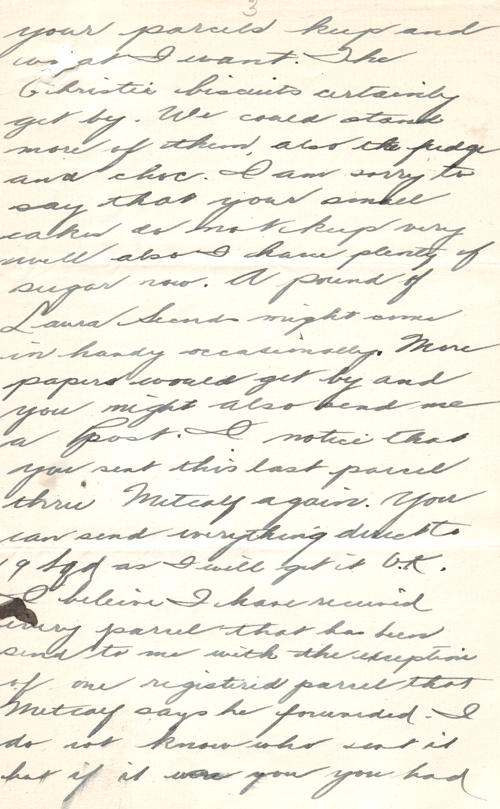 3
your parcels keep and
what I want. The
Christie biscuits certainly
get by. We could stand
more of them, also the fudge
and choc. I am sorry to
say that your small
cakes do not keep very
well also I have plenty of
sugar now. A pound of
Laura Secords might come
in handy occasionally. More
papers would get by and
you might also send me
a Post. I notice that
you sent this last parcel
thru Metcalf again. You
can send everything direct to
19 as I will get it O.K.
I beleive I have received
every parcel that has been
send to me with the exception
of one registered parcel that
Metcalf says he forwarded. I
do not know who sent it
but if it were you you had